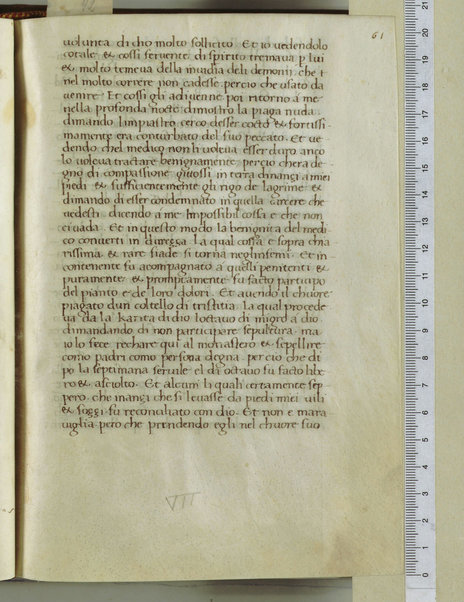 61
uolunta di dio molto sollicito. Et io uedendolo
cotale & cossi feruente di spirito tremaua p lui
& molto temeua della inuidia deli demonii che
nel molto correre non cadesse percio che usato da
uenire. Et cossi gli aduenne poi ritorno a me
nella profonda nocte dimostro la piaga nuda
dimando limpiastro cerco desser cocto & fortissi
mamente era conturbato del suo peccato. Et ue
dendo chel medico non li uoleua esser duro anco
lo uoleua tractare benignamente percio chera de
gno di compassione gittossi in terra dinanzi a miei
piedi & sufficientemente gli rigo de lagrime &
dimando di esser condemnato in quella carcere che
uedesti dicendo a me Impossibil cossa e che non
ci uada. Et in questo modo la benignita del medi
co conuerti in durezza. La qual cossa e sopra chia
rissima & rare fiade si torna neglinfermi. Et in
contenente fu acompagnato a questi penitenti &
puramente & promptamente fu facto participo
del pianto e de loro dolori. Et auendo il chuore
piagato dun coltello di tristitia la qual procede
ua da la Karita di dio loctauo di migro a dio
dimandando di non participare sepultura. ma
io lo fece rechare qui al monastero & sepellire
como padri como persona degna. percio che di
po la septimana seruile el di octauo fu facto libe
ro & asciolto. Et alcuni li quali certamente sep
pero che inanzi che si leuasse da piedi miei uili
& sozzi fu reconciliato con dio. Et non e mara
uiglia pero che prendendo egli nel chuore suo
VII